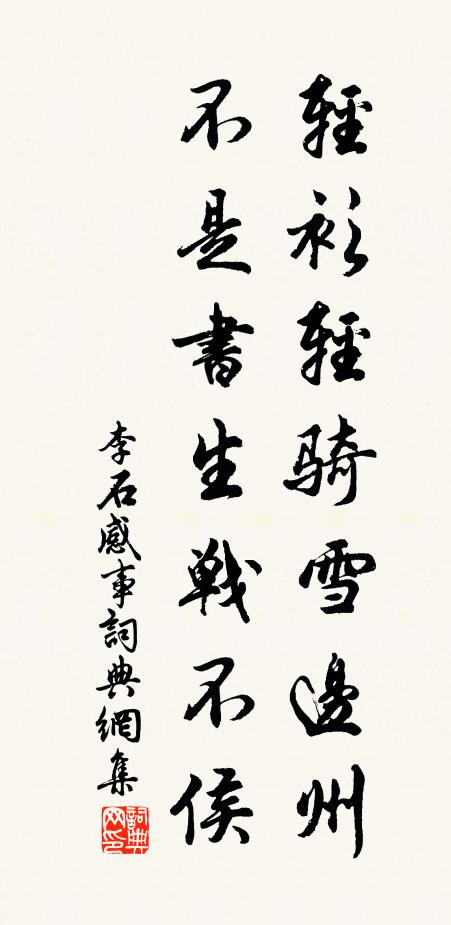 輕衫輕騎雪邊州
不是書生戰不侯
李石感事詞典網集
詞典网印